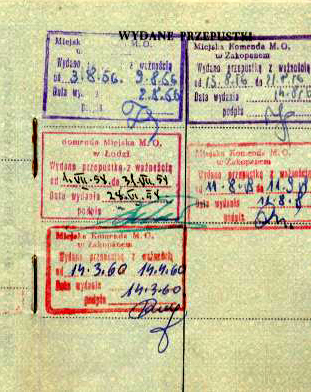 WYDANE PRZEPUSTKI
Miejsk M. O.
Wydano z ważnością
od 3.8.56. 9.8.56
Data wy 2.8.56
Miejska Komenda M. O.
w Zakopanem
Wydano przepustkę z ważnością
Data wydania
podpis
omenda Miejska M. O.
w Łodzi
Wydano przepustkę z ważnością
od 1.VII.54. do 31.VII.54
Data wydania 28.VI.54
podpis
Miejska Komenda M. O.
w Zakopanem
Wydano przepustkę z ważnością
od 11-8-8 do
Data wydania 11-8-8
podpis
Miejska Komenda M. O.
w Zakopanem
Wydano przepustkę z ważnością
od 14.3.60 14.4.60
Data wydania 14.3.60
podpis